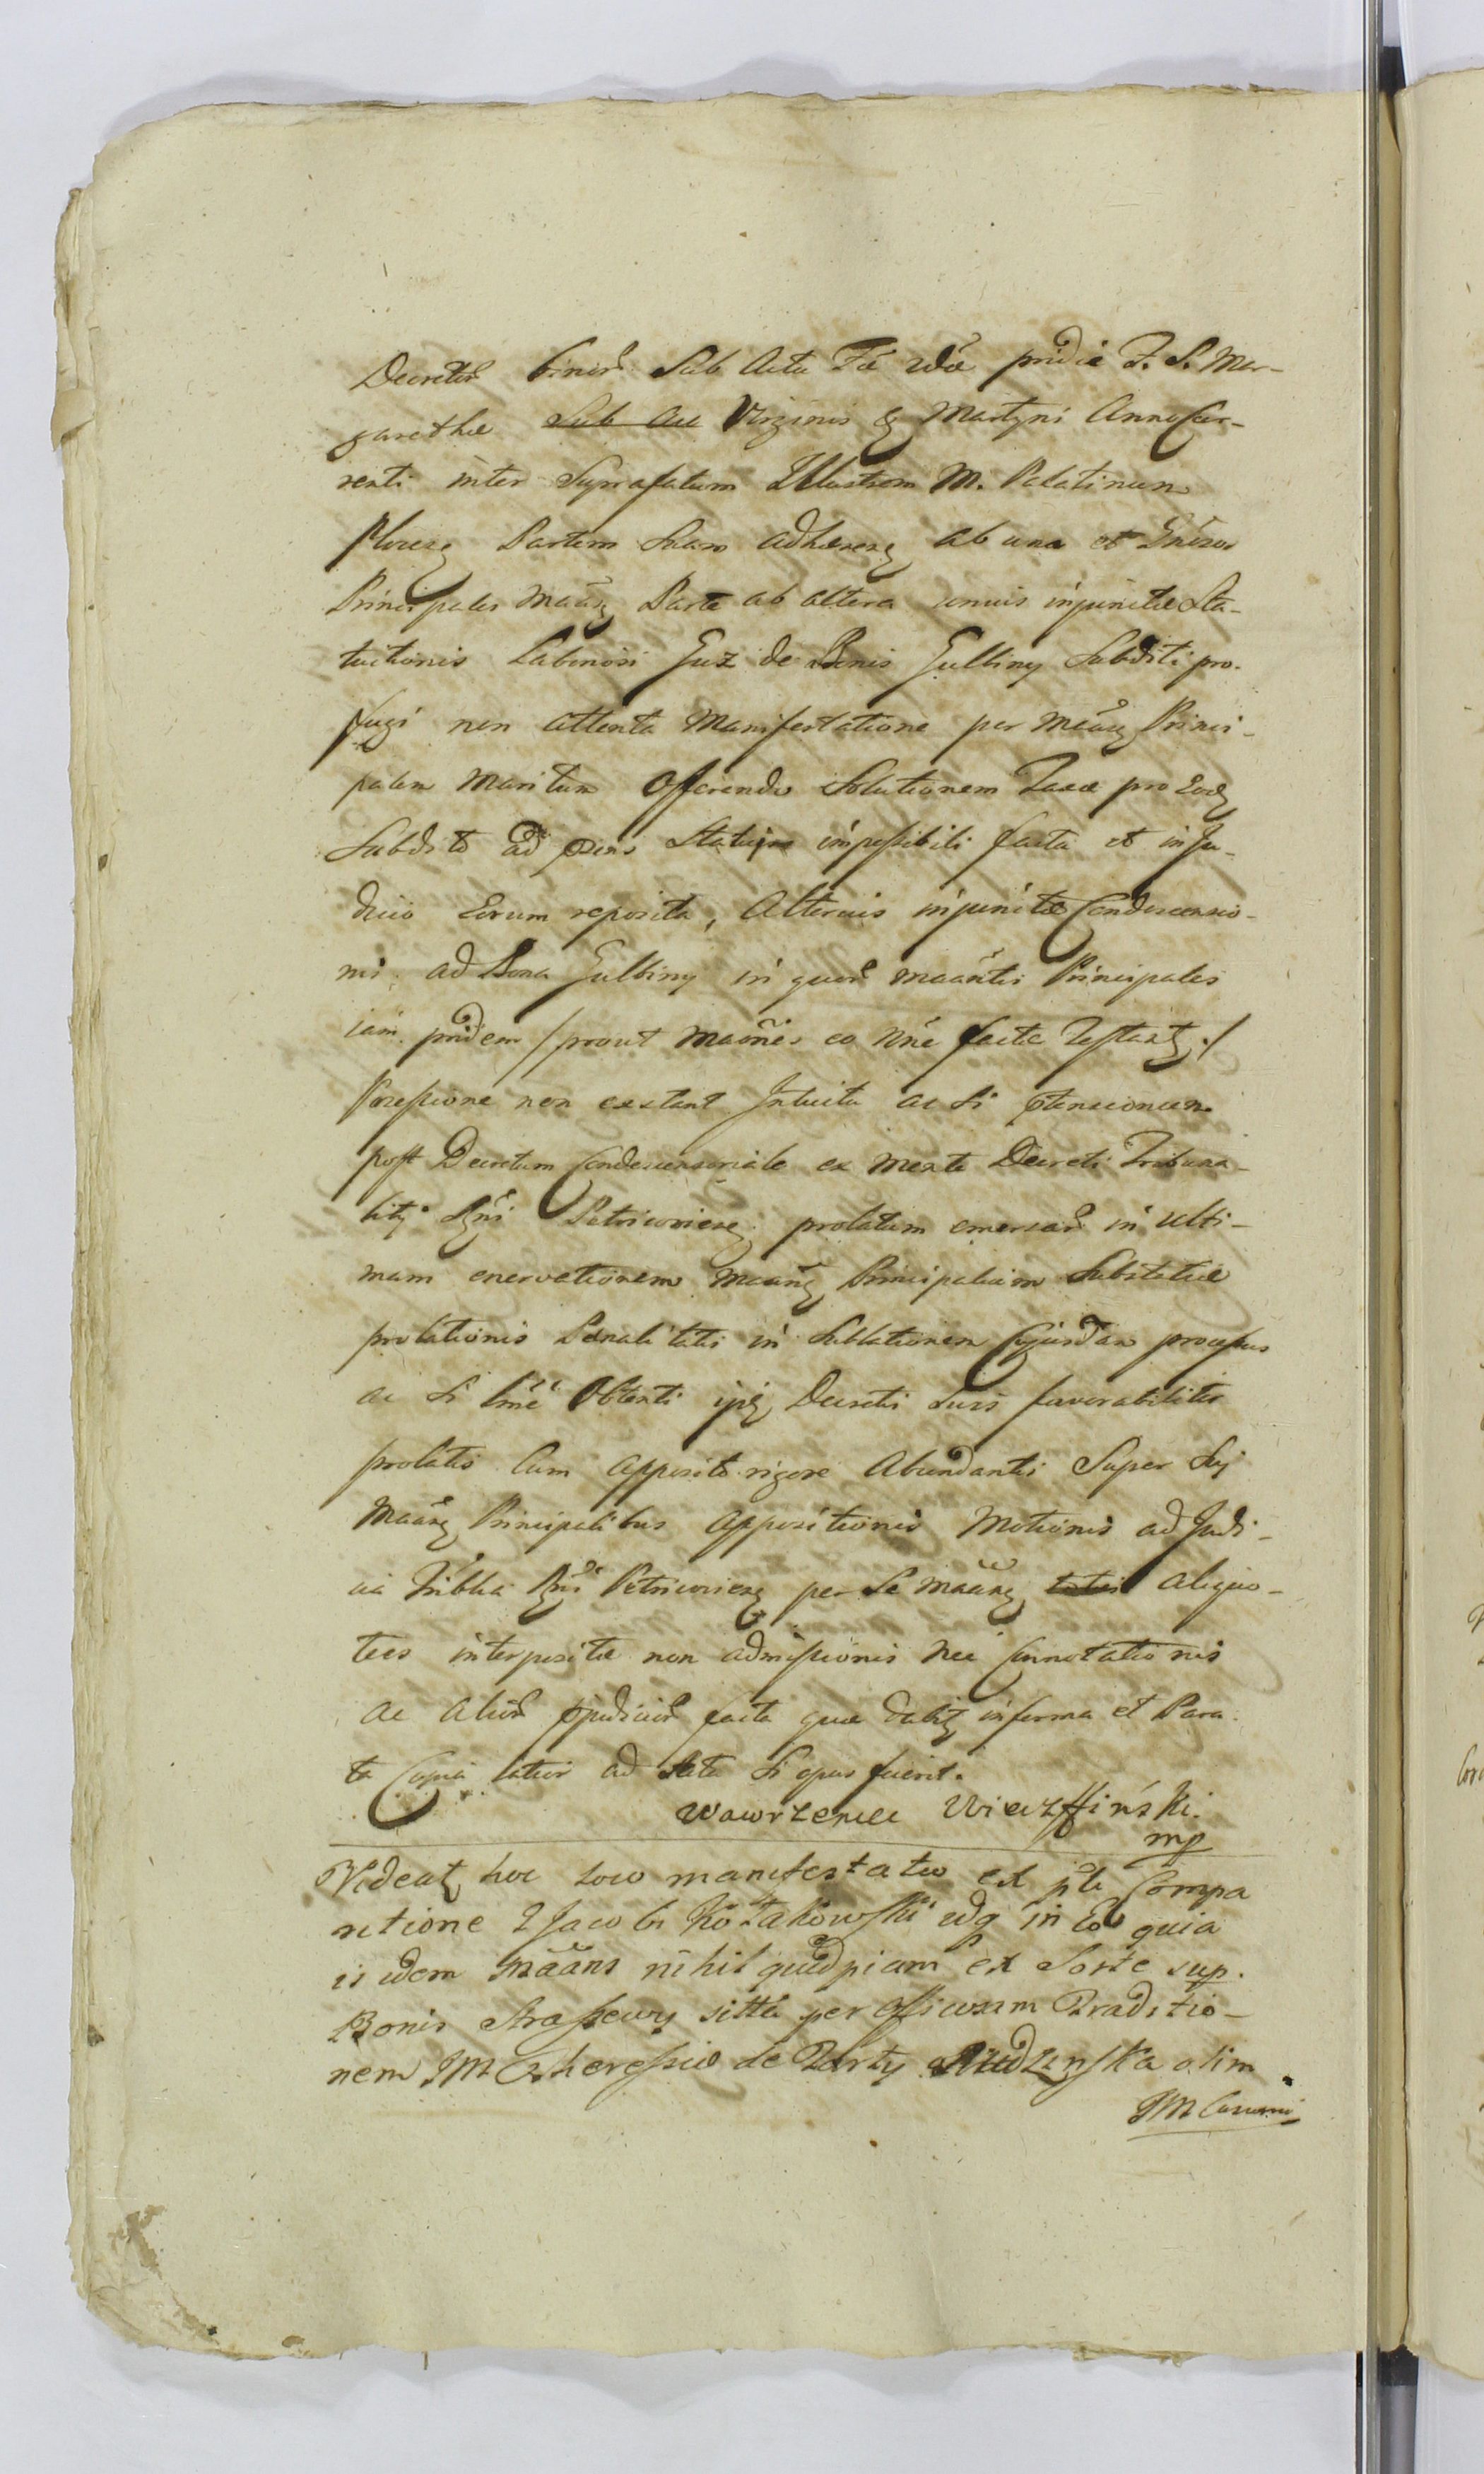 Decretis binis Sub Actu Fa rda pridie F. S. Mar-
garethae Sub Au Virginis & Martyris Anno Cur-
renti inter Suprafatum Illustrem M. Palatinum
Partem Suam adhaeren ab una et Gnros
Principales Maãn Parte ab altera unius injunctae Sta-
tuitionis Laboriosi Guz de Bonis Gulbiny Subditi pro-
fugi non attenta Manifestatione per Maãn Princi-
palem Maritum Offerendo Solutionem Taxae pro Eod
Subdito ad pns Statui impossibili facta et in Ju-
dicio Eorum reposita, Alterius injunctae Condescensio-
nis ad Bona Gulbiny in quor Maãntes Principales
iam pridem /prout Maõnes eo nne facte Testant/
Possessione non extant Intuitu ac si ptensionum
post Decretum Condescensoriale ex Mente Decreti Tribuna-
lity Rgni Petricovien prolatum emersar in ulti-
mam enervationem Maãn Principalium Substatiae
prolationis Penalitatis in Sublationem Cujusdam processus
ac si lmẽ Obtenti ips Decretis Suis favorabiliter
prolatis Cum Apposito rigore Abundantis Super Sej
Maãn Principalibus Appositionis Motionis ad Judi-
cia Tribblia Rgni Petricovien per Se Maãn toties aliquo-
ties interpositae non admissionis nec Connotationis
ac Alior pjudicior facta quae dabit in forma et Para-
ta Copia latior ad Acta Si opus fuerit.
Wawrzeniec Wierzffiński.
mp
Videat hoc loco manifestatio ex pte Compa
ritione G Jacobi Kołakowski idq in Eo quia
is idem Mãans nihil quidpiam ex Sorte sup.
Bonis Straszewy sitta per Officiosam Traditio-
nem JM Theressiae de Zorty Rudzinska olim
JM Casimi